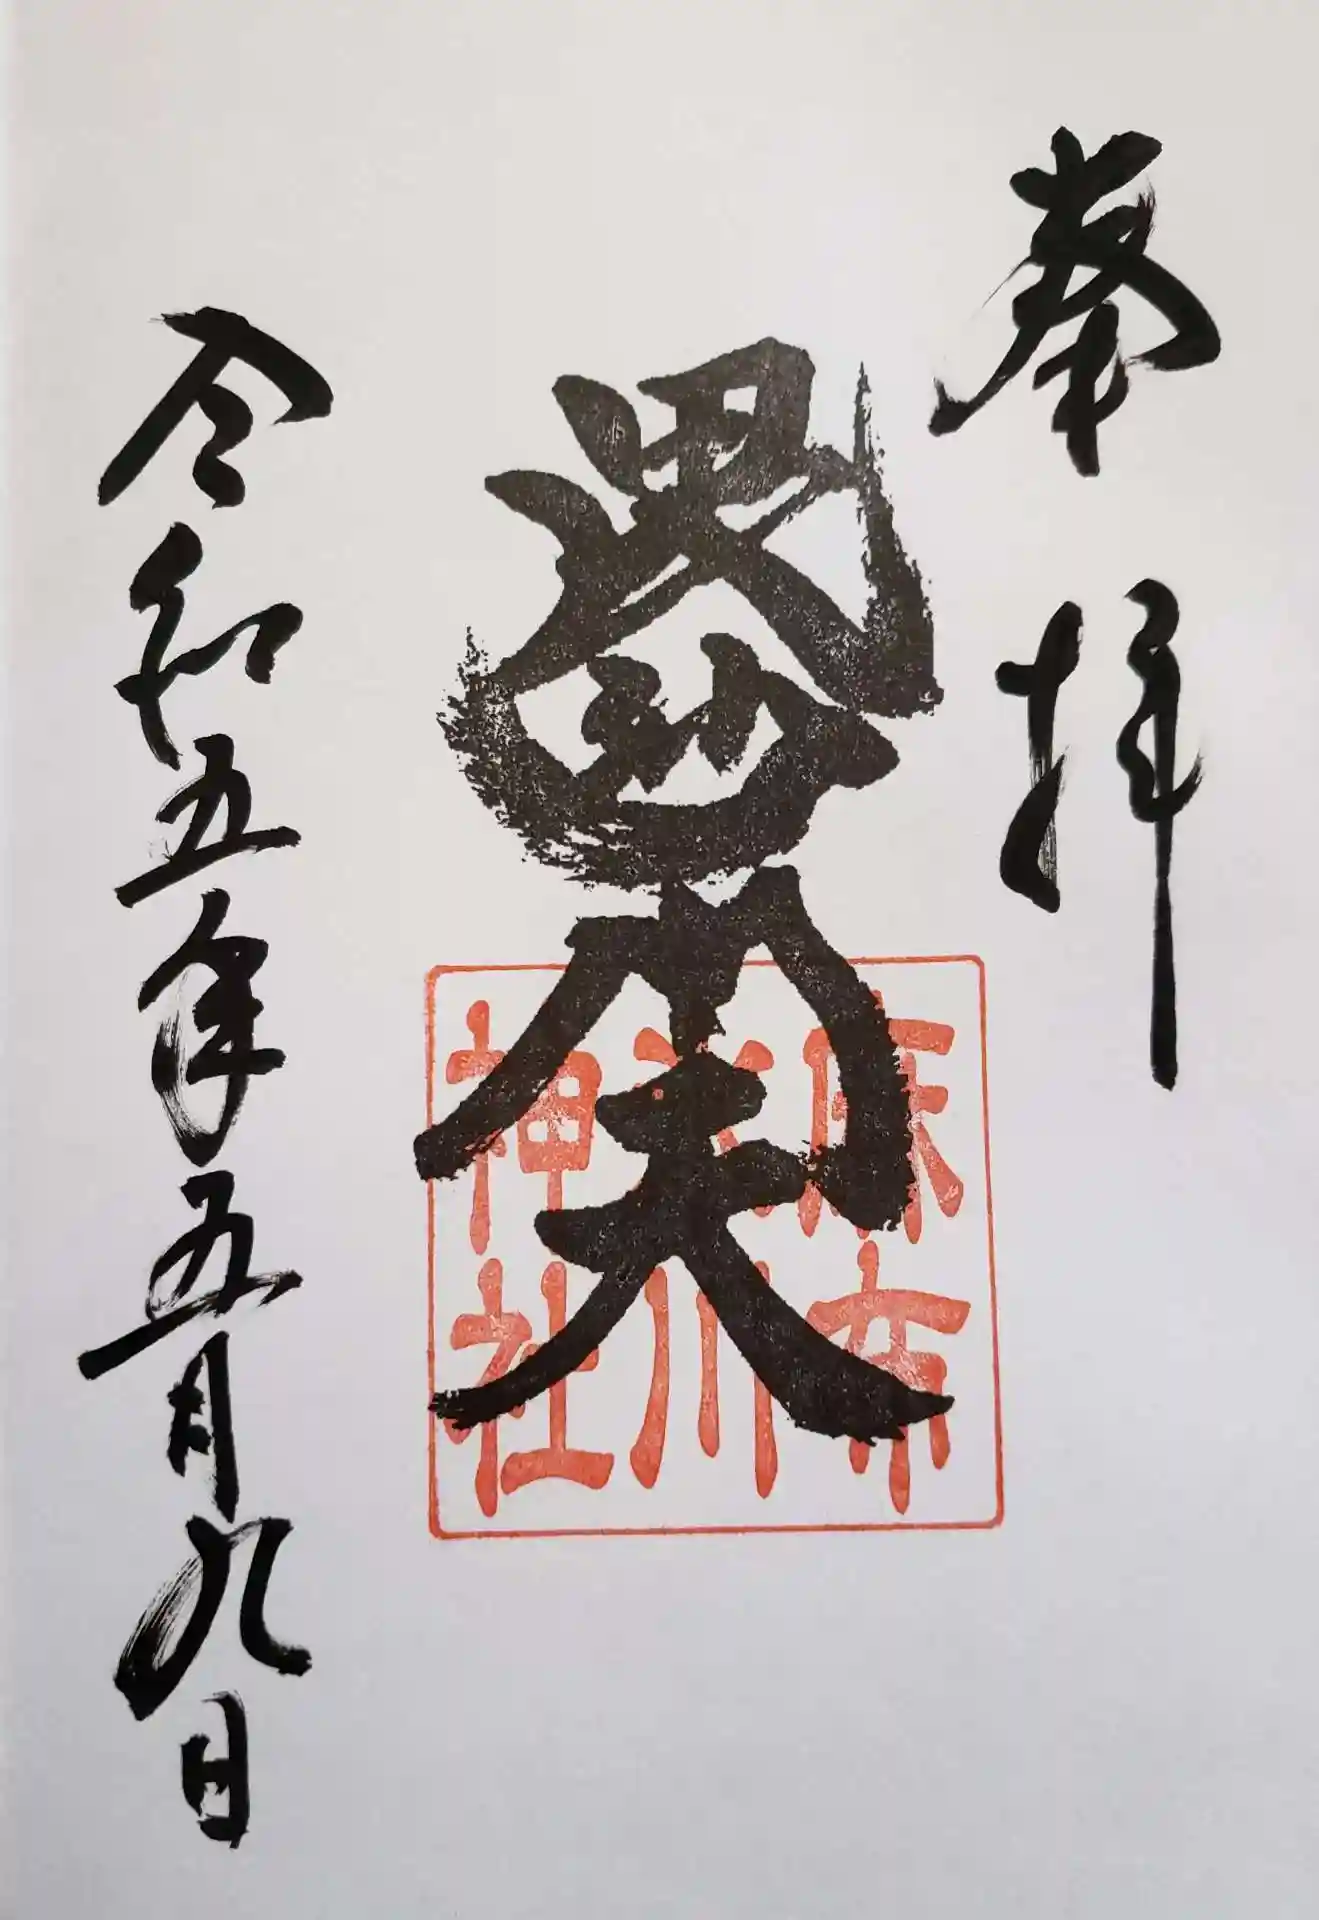 奉拝
麻布
氷川
神社
令和五年五月九日